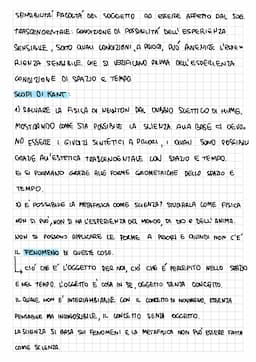 SENSIBILITÀ: FACOLTÀ DEL SOGGETTO AD ESSERE AFFETTO DAL SOG.
TRASCENDENTALE: CONDIZIONE DI POSSIBILITÀ DELL'ESPERIENZA
SENSIBILE, SONO QUALI CONDIZIONI, A PRIORI, PUÒ AVVENIRE L'ESPE-
RIENZA SENSIBILE CHE SI VERIFICANO PRIMA DELL'ESPERIENZA
CONDIZIONE DI SPAZIO E TEMPO.
SCOPI DI KANT:
1) SALVARE LA FISICA DI NEWTON DAL DUBBIO SCETTICO DI HUME,
MOSTRANDO COME SIA POSSIBILE LA SCIENZA. ALLA BASE CI DEVO-
NO ESSERE I GIUDIZI SINTETICI A PRIORI, I QUALI SONO POSSIBILI
GRAZIE ALL'ESTETICA TRASCENDENTALE CON SPAZIO E TEMPO.
E SI FORMANO GRAZIE ALLE FORME GEOMETRICHE DELLO SPAZIO E
TEMPO.
2) E' POSSIBILE LA METAFISICA COME SCIENZA? STUDIARLA COME FISICA
NON SI PUÒ, NON SI HA L'ESPERIENZA DEL MONDO, DI DIO E DELL'ANIMA.
NON SI POSSONO APPLICARE LE FORME A PRIORI E QUINDI NON C'E'
IL FENOMENO DI QUESTE COSE.
CIO' CHE E' L'OGGETTO PER NOI, CIÒ CHE E' PERCEPITO NELLO SPAZIO
E NEL TEMPO. L'OGGETTO E' COSA IN SE, OGGETTO SENZA CONCETTO.
IL QUALE NON E' INTERCAMBIABILE CON IL CONCETTO DI NOUMENO, ESSENZA
PENSABILE MA INCONOSCIBILE, IL CONCETTO SENZA OGGETTO.
LA SCIENZA SI BASA SUI FENOMENI E LA METAFISICA NON PUÒ ESSERE FATTA
COME SCIENZA.